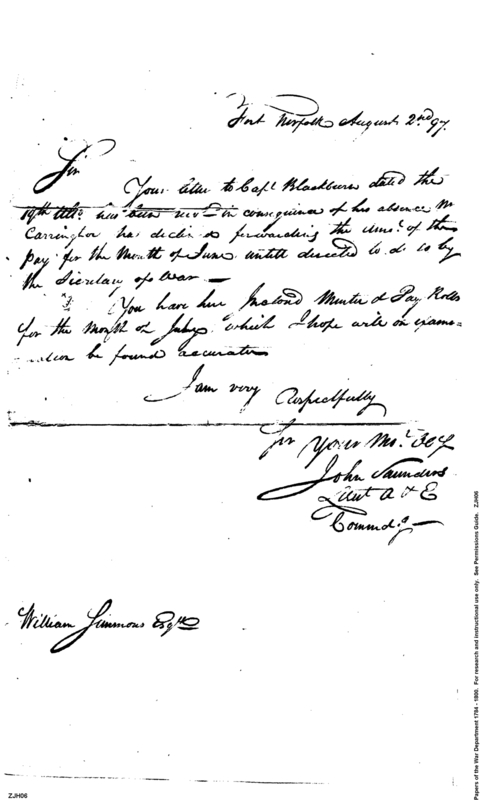 Fort Norfolk August 2nd 97.
Sir
Your letter to Capt Blackburn dated the
19th Ulto has been recd in consequence of his absence Mr
Carrington has declin'd forwarding the amot of the
Pay for the Month of June untill directed to do so by
the Secretary of War —
You have here Inclosed Muster & Pay Rolls
for the Month of July which I hope will on exami=
=nation be found accurate
I am very Respectfully
Sir Your Mot Obt
John Saunders
Lieut A & E
Commdg —
William Simmons Esqre
Papers of the War Department 1784 - 1800. For research and instructional use only. See Permissions Guide. ZJH06
ZJH06